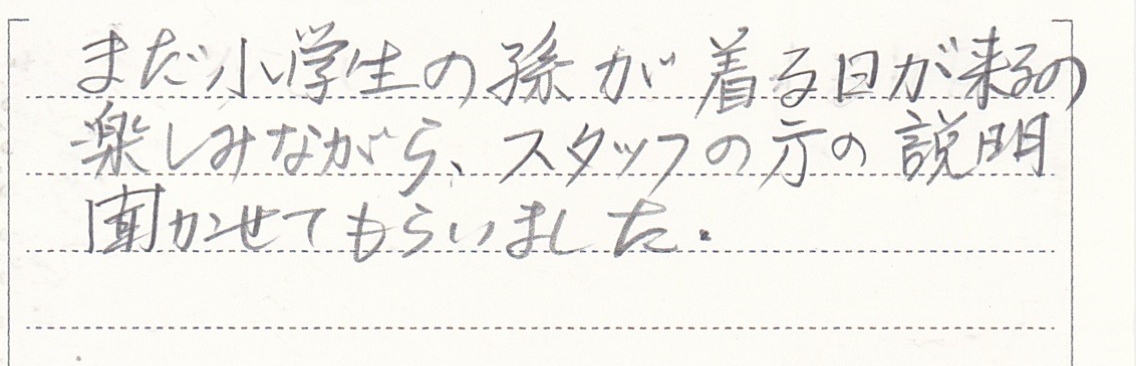 まだ小学生の孫が着る日が来るの
楽しみながら、スタッフの方の説明
聞かせてもらいました.